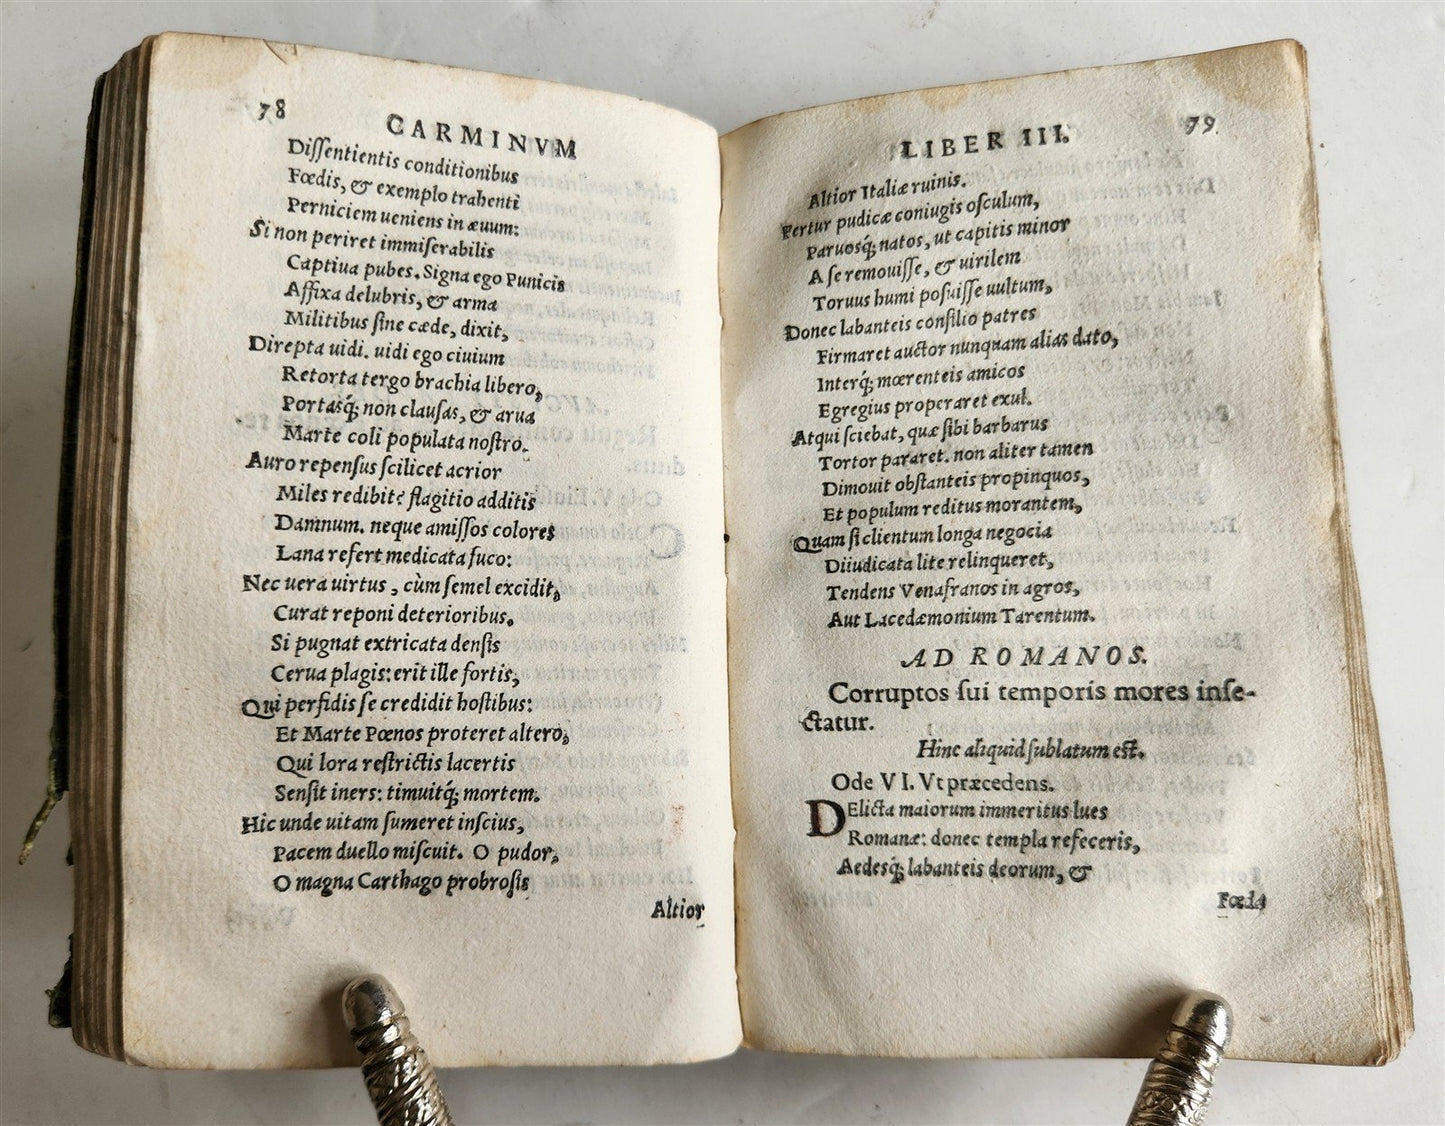 78
CARMINVM
Dissentientis conditionibus
Fœdis, & exemplo trahenti
Perniciem ueniens in æuum:
Si non periret immiserabilis
Captiua pubes. Signa ego Punicis
Affixa delubris, & arma
Militibus sine cæde, dixit,
Direpta uidi. uidi ego ciuium
Retorta tergo brachia libero,
Portasq́; non clausas, & arua
Marte coli populata nostro.
Auro repensus scilicet acrior
Miles redibit? flagitio additis
Damnum. neque amissos colores
Lana refert medicata fuco:
Nec uera uirtus, cùm semel excidit,
Curat reponi deterioribus.
Si pugnat extricata densis
Cerua plagis: erit ille fortis,
Qui perfidis se credidit hostibus:
Et Marte Pœnos proteret altero,
Qui lora restrictis lacertis
Sensit iners: timuitq́; mortem.
Hic unde uitam sumeret inscius,
Pacem duello miscuit. O pudor,
O magna Carthago probrosis
Altior
LIBER III.
79
Altior Italiæ ruinis.
Fertur pudicæ coniugis osculum,
Paruosq́; natos, ut capitis minor
A se remouisse, & uirilem
Toruus humi posuisse uultum,
Donec labanteis consilio patres
Firmaret auctor nunquam alias dato,
Interq́; mœrenteis amicos
Egregius properaret exul.
Atqui sciebat, quæ sibi barbarus
Tortor pararet. non aliter tamen
Dimouit obstanteis propinquos,
Et populum reditus morantem,
Quam si clientum longa negocia
Diiudicata lite relinqueret,
Tendens Venafranos in agros,
Aut Lacedæmonium Tarentum.
AD ROMANOS.
Corruptos sui temporis mores inse-
ctatur.
Hinc aliquid sublatum est.
Ode VI. Vt præcedens.
DElicta maiorum immeritus lues
Romane: donec templa refeceris,
Aedesq́; labanteis deorum, &
Fœda